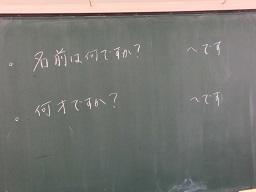 。名前は何ですか？ 〜です
。何才ですか？ 〜です